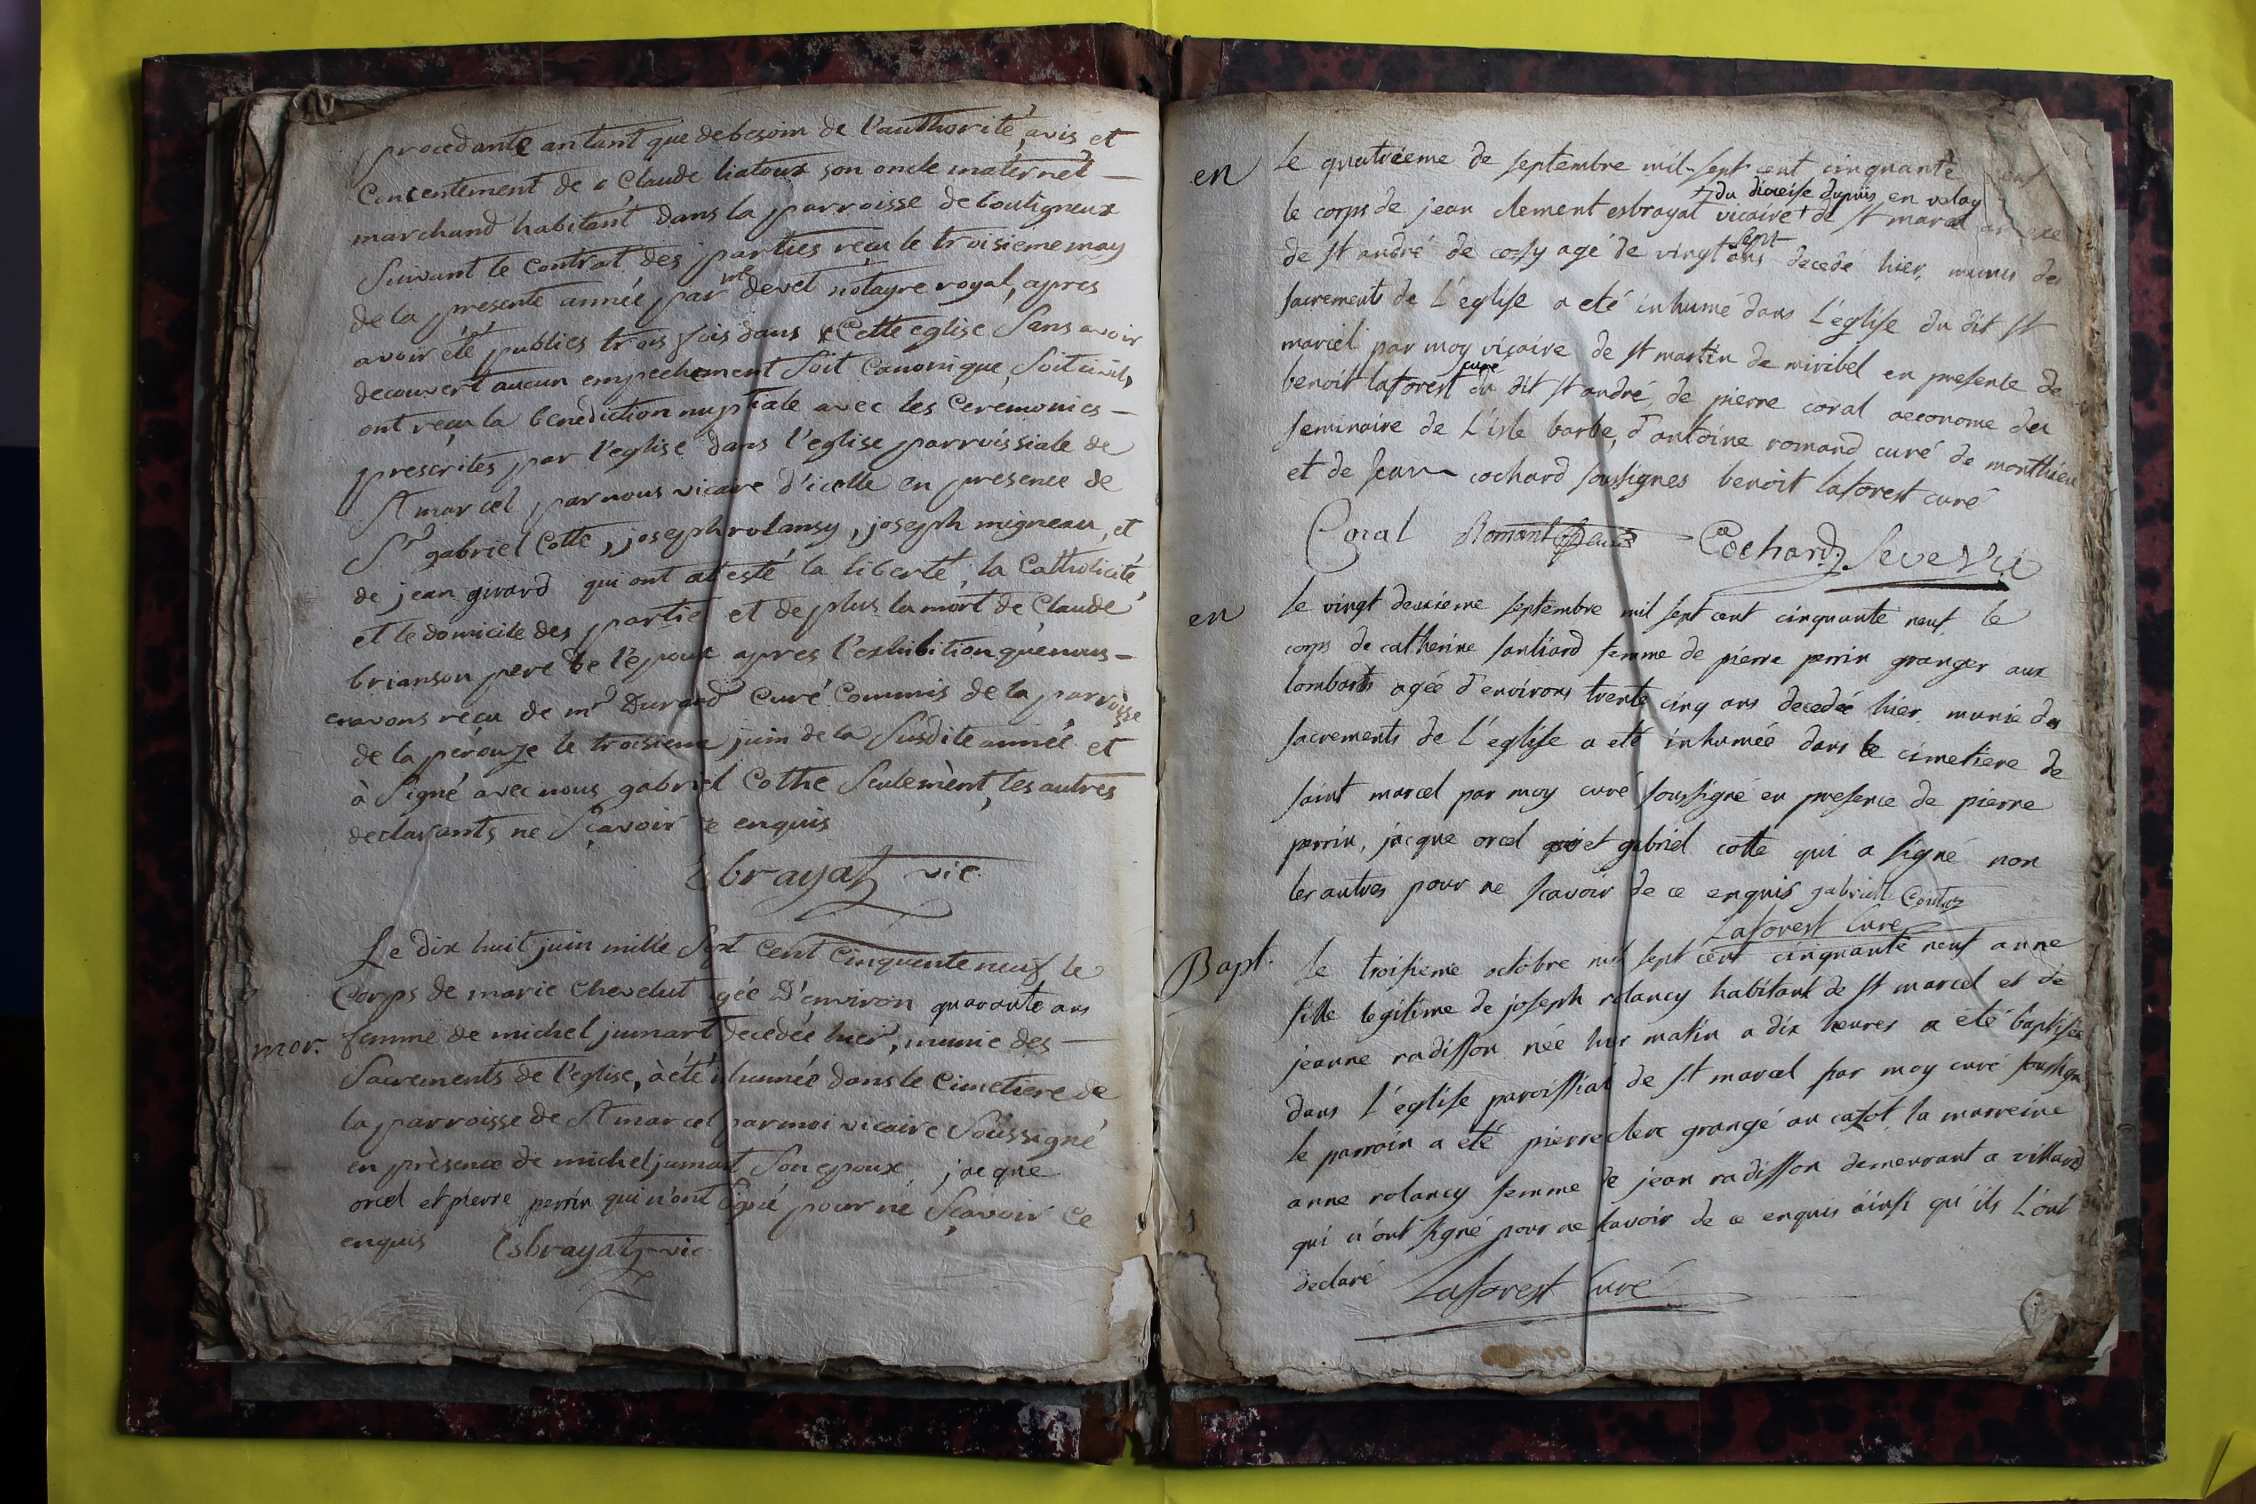 procedante an tant que debesoin de l'authorité, avis et
Concentement de Claude liatoux son oncle maternel
marchand habitant dans la parroisse de bouligneux
Suivant le Contrat des parties reçu le troisieme may
de la presente année par me devet notayre royal, apres
avoir été publiés trois fois dans Cette eglise Sans avoir
decouvert aucun empechement Soit Canonique, Soit civil,
ont reçu la benediction nuptiale avec les Ceremonies
prescrites par l'eglise dans l'eglise parroissiale de
St marcel par nous vicaire d'icelle en presence de
Sr gabriel Cotte, joseph rolansy, joseph migneau, et
de jean girard qui ont attesté la liberté, la Catholicité,
et le domicile des partie et de plus la mort de Claude
brianson pere de l'epoux apres l'exhibition que nous
en avons reçu de mr Durand Curé Commis de la parroisse
de la perouze le troisieme juin de la Susdite année et
à Signé avec nous gabriel Cothe Seulemènt, les autres
declarants ne Sçavoir ce enquis
Esbrayat vic
Le dix huit juin mille Sept Cent Cinquente neuf le
Corps de marie Chevelut agée D'environ quarante ans
mor. femme de michel jumart decedée hier, munie des
Sacrements de l'eglise, à été inhumée dans le Cimetiere de
la parroisse de St marcel par moi vicaire Soussigné
en prèsence de michel jumart Son epoux, jacque
orcel et pierre perrin qui n'ont Signé pour ne Sçavoir Ce
enquis Esbrayat vic
en le quatrieeme de septembre mil sept cent cinquante neuf
+ du dioceise dupuiis en velay
le corps de jean clement esbrayat vicaire + de st marcel
sept
de st andré de corsy agé de vingt ans decedé hier, munis des
sacrements de L'eglise a eté inhumé dans L'eglise du dit st
marcel par moy vicaire de st martin de miribel en presence de
curé
benoit laforest du dit st andré, de pierre coral oeconome du
seminaire de L'isle barbe, d'antoine romand curé de monthieu
et de jean cochard soussignes benoit laforest curé
Coral Romant Cochard Seve Vic
en le vingt deuxieme septembre mil sept cent cinquante neuf le
corps de catherine sauliard femme de pierre perrin granger aux
lombards agée d'environs trente cinq ans decedée hier munie des
sacrements de L'eglise a eté inhumée dans le cimetiere de
saint marcel par moy curé soussigné en presence de pierre
perrin, jacque orcel et gabriel cotte qui a signé non
les autres pour ne scavoir de ce enquis gabriel Cotte
Laforest Curé
Bapt. le troisieme octobre mil sept cent cinquante neuf anne
fille legitime de joseph rolancy habitant de st marcel et de
jeanne radisson née hier matin a dix heures a été baptisée
dans L'eglise paroissial de st marcel par moy curé soussigné
le parrain a eté pierre clerc grangé au cazot la marreine
anne rolancy femme de jean radisson demeurant a villard
qui n'ont signé pour ne scavoir de ce enquis ainsi qu'ils L'ont
declaré Laforest Curé